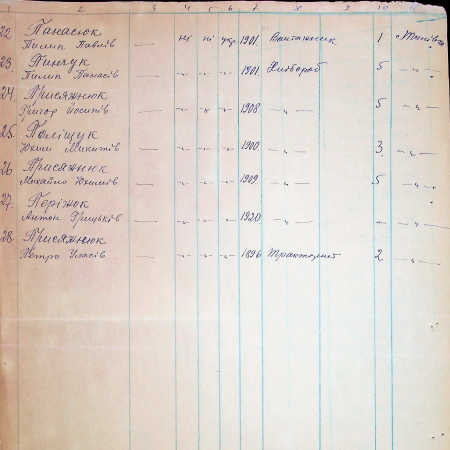 1 2 3 4 5 6 7 8 9 10 11
22. Панасюк
Пилип Павлів — ні ні укр. 1901. 1
23. Пінчук
Пилип Панасів — -"- -"- -"- 1901. Хлібороб 5 -"-
24. Присяжнюк
Григор Йосипів — -"- -"- -"- 1908. -"- 5 -"-
25. Поліщук
Юхим Микитів — -"- -"- -"- 1900 -"- 3 -"-
26 Присяжнюк
Михайло Юхимів — -"- -"- -"- 1909. -"- 5 -"-
27. Поріжюк
Антон Грицьків — -"- -"- -"- 1920 -"- -"-
28. Присяжнюк
Петро Уласів — -"- -"- -"- 1896 Тракторист 2 -"-